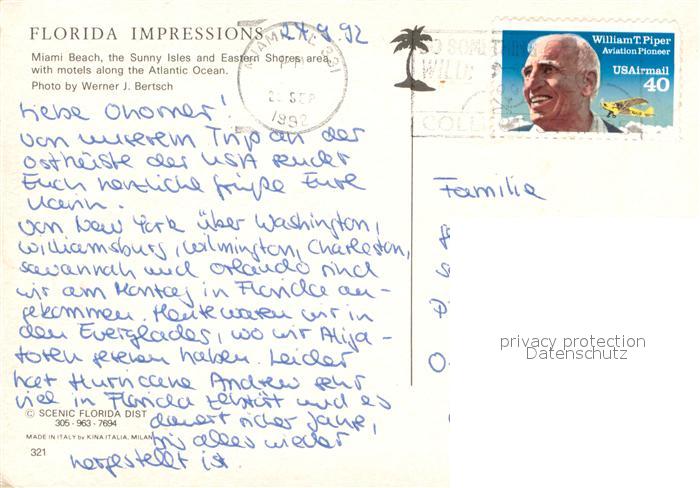 FLORIDA IMPRESSIONS 24.9.92
Miami Beach, the Sunny Isles and Eastern Shores area,
with motels along the Atlantic Ocean.
Photo by Werner J. Bertsch
MIAMI, FL 331
SEP
1992
William T. Piper
Aviation Pioneer
USAirmail
40
Liebe
von unserem Trip an der
Ostküste der USA sendet
Euch herzliche Grüße Eure
Karin.
Von New York über Washington,
Williamsburg, Wilmington, Charleston,
Savannah und Orlando sind
wir am Montag in Florida an-
gekommen. Heute waren wir in
den Everglades, wo wir Alliga-
toren gesehen haben. Leider
hat Hurricane Andrew sehr
viel in Florida zerstört und es
dauert sicher Jahre,
bis alles wieder
hergestellt ist.
Familie
privacy protection
Datenschutz
© SCENIC FLORIDA DIST
305 - 963 - 7694
MADE IN ITALY by KINA ITALIA, MILAN
321